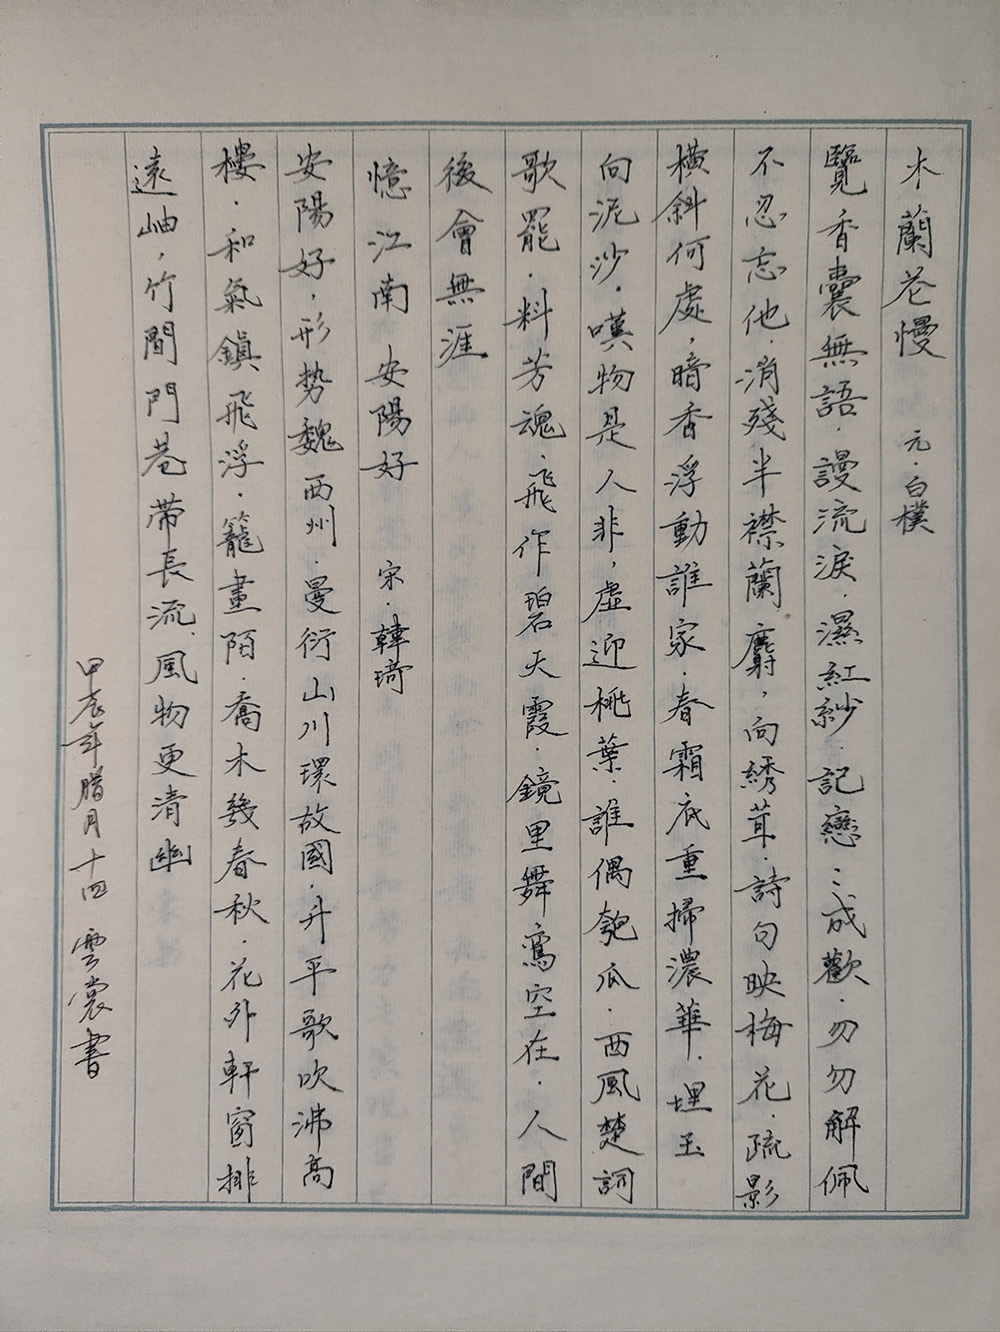 木蘭花慢 元·白樸
覽香囊無語，謾流淚，濕紅紗。記戀：成歡，勿勿解佩
不忍忘他。消殘半襟蘭麝，向綉茸，詩句映梅花。疏影
橫斜何處，暗香浮動誰家。春霜底重掃濃華，埋玉
向泥沙，嘆物是人非，虛迎桃葉，誰偶匏瓜。西風楚詞
歌罷，料芳魂，飛作碧天霞。鏡里舞鸞空在，人間
後會無涯
憶江南 安陽好 宋·韓琦
安陽好，形势魏西州。曼衍山川環故國，升平歌吹沸高
樓。和氣鎮飛浮。籠畫陌，喬木幾春秋。花外軒窗排
遠岫，竹間門巷带長流。風物更清幽
甲辰年腊月十四 雲裳書